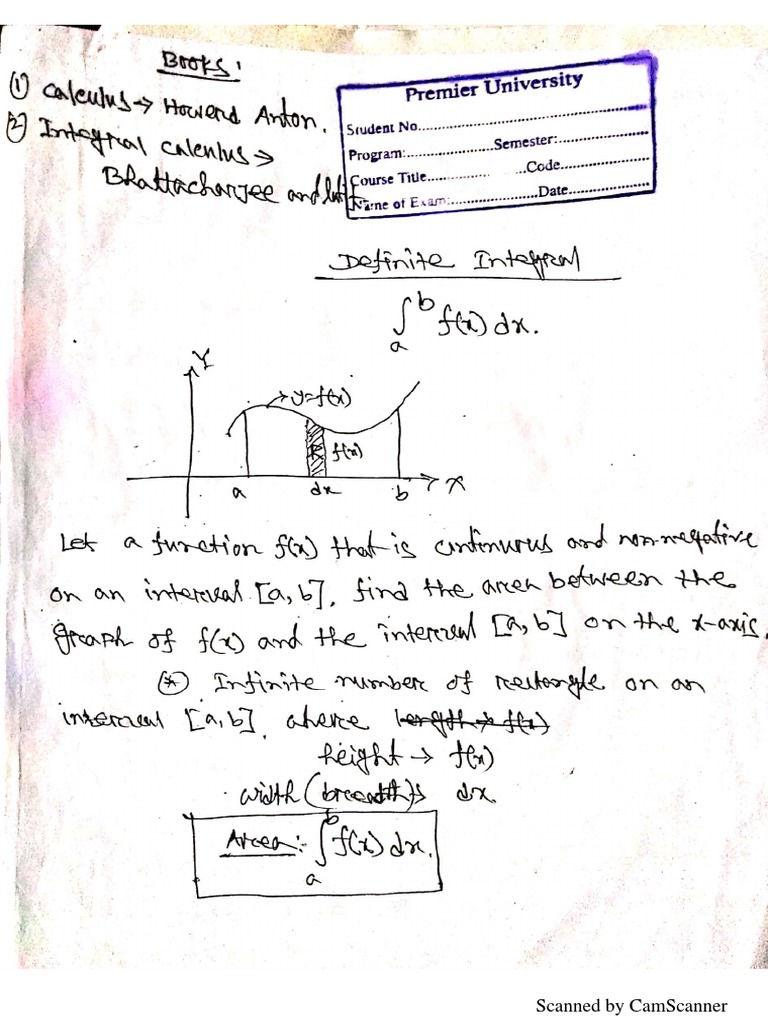 Books:
(1) Calculus → Howard Anton.
(2) Integral Calculus →
Bhattacharjee and
Premier University
Student No.
Program: Semester:
Course Title Code
Name of Exam: Date
Definite Integral
∫ₐᵇ f(x) dx.
Y
→ y=f(x)
R f(x)
a dx b → X
Let a function f(x) that is continuous and non-negative
on an interval [a, b], find the area between the
graph of f(x) and the interval [a, b] on the x-axis.
(*) Infinite number of rectangle on an
interval [a, b], where length → f(x)
height → f(x)
width (breadth) → dx
Area:- ∫ₐᵇ f(x) dx.
Scanned by CamScanner